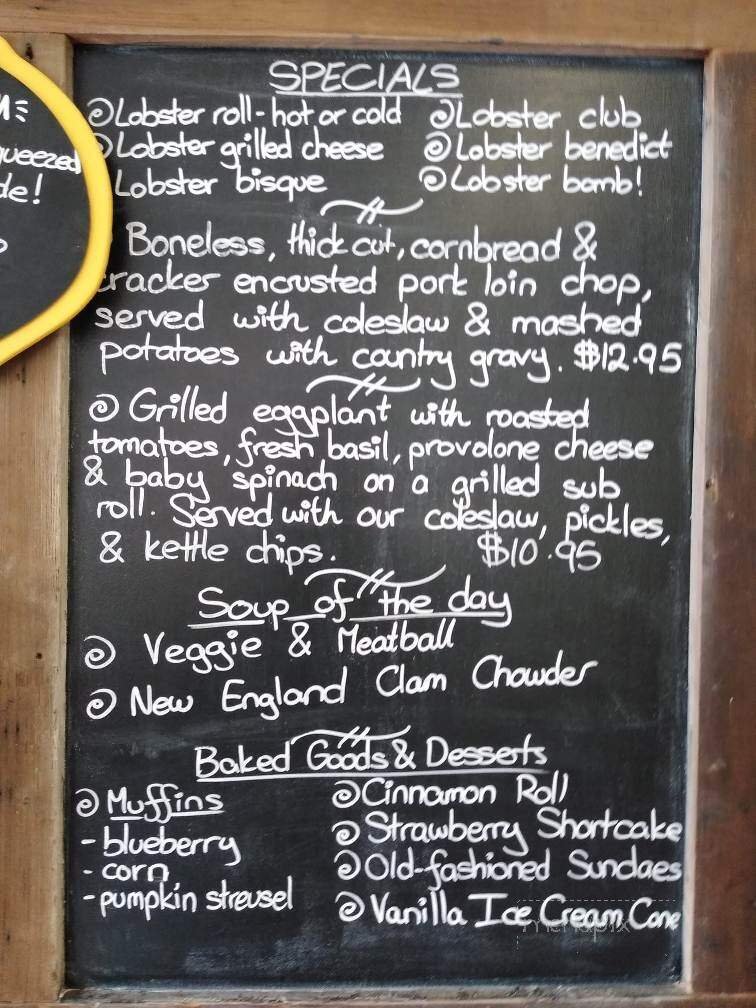 SPECIALS
Lobster roll - hot or cold
Lobster club
Lobster grilled cheese
Lobster benedict
Lobster bisque
Lobster bomb!
Boneless, thick cut, cornbread &
cracker encrusted pork loin chop,
served with coleslaw & mashed
potatoes with country gravy. $12.95
Grilled eggplant with roasted
tomatoes, fresh basil, provolone cheese
& baby spinach on a grilled sub
roll. Served with our coleslaw, pickles,
& kettle chips. $10.95
Soup of the day
Veggie & Meatball
New England Clam Chowder
Baked Goods & Desserts
Muffins
- blueberry
- corn
- pumpkin streusel
Cinnamon Roll
Strawberry Shortcake
Old-fashioned Sundaes
Vanilla Ice Cream Cone
menupix